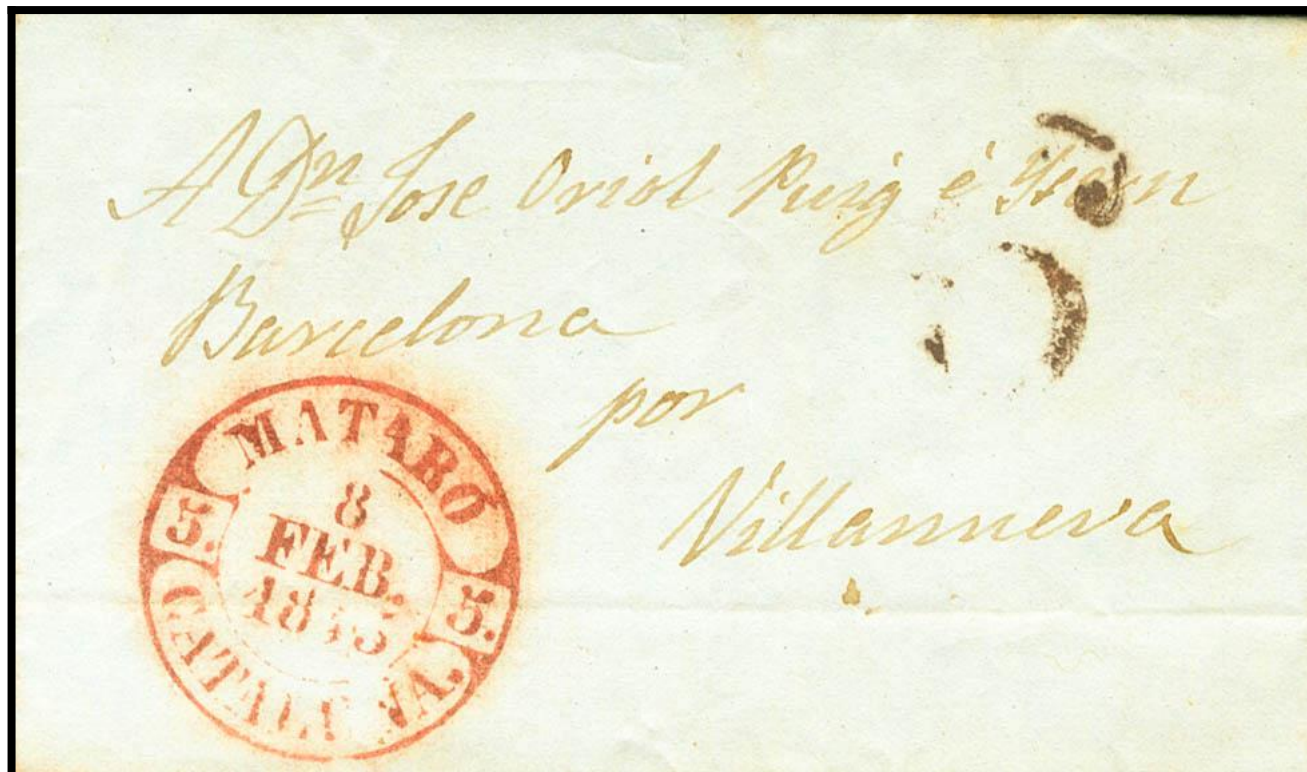 A Dn Jose Oriol Puig é
Barcelona
por
Villanueva
5
MATARÓ
8
FEB.
5. 5.
CATALUÑA.